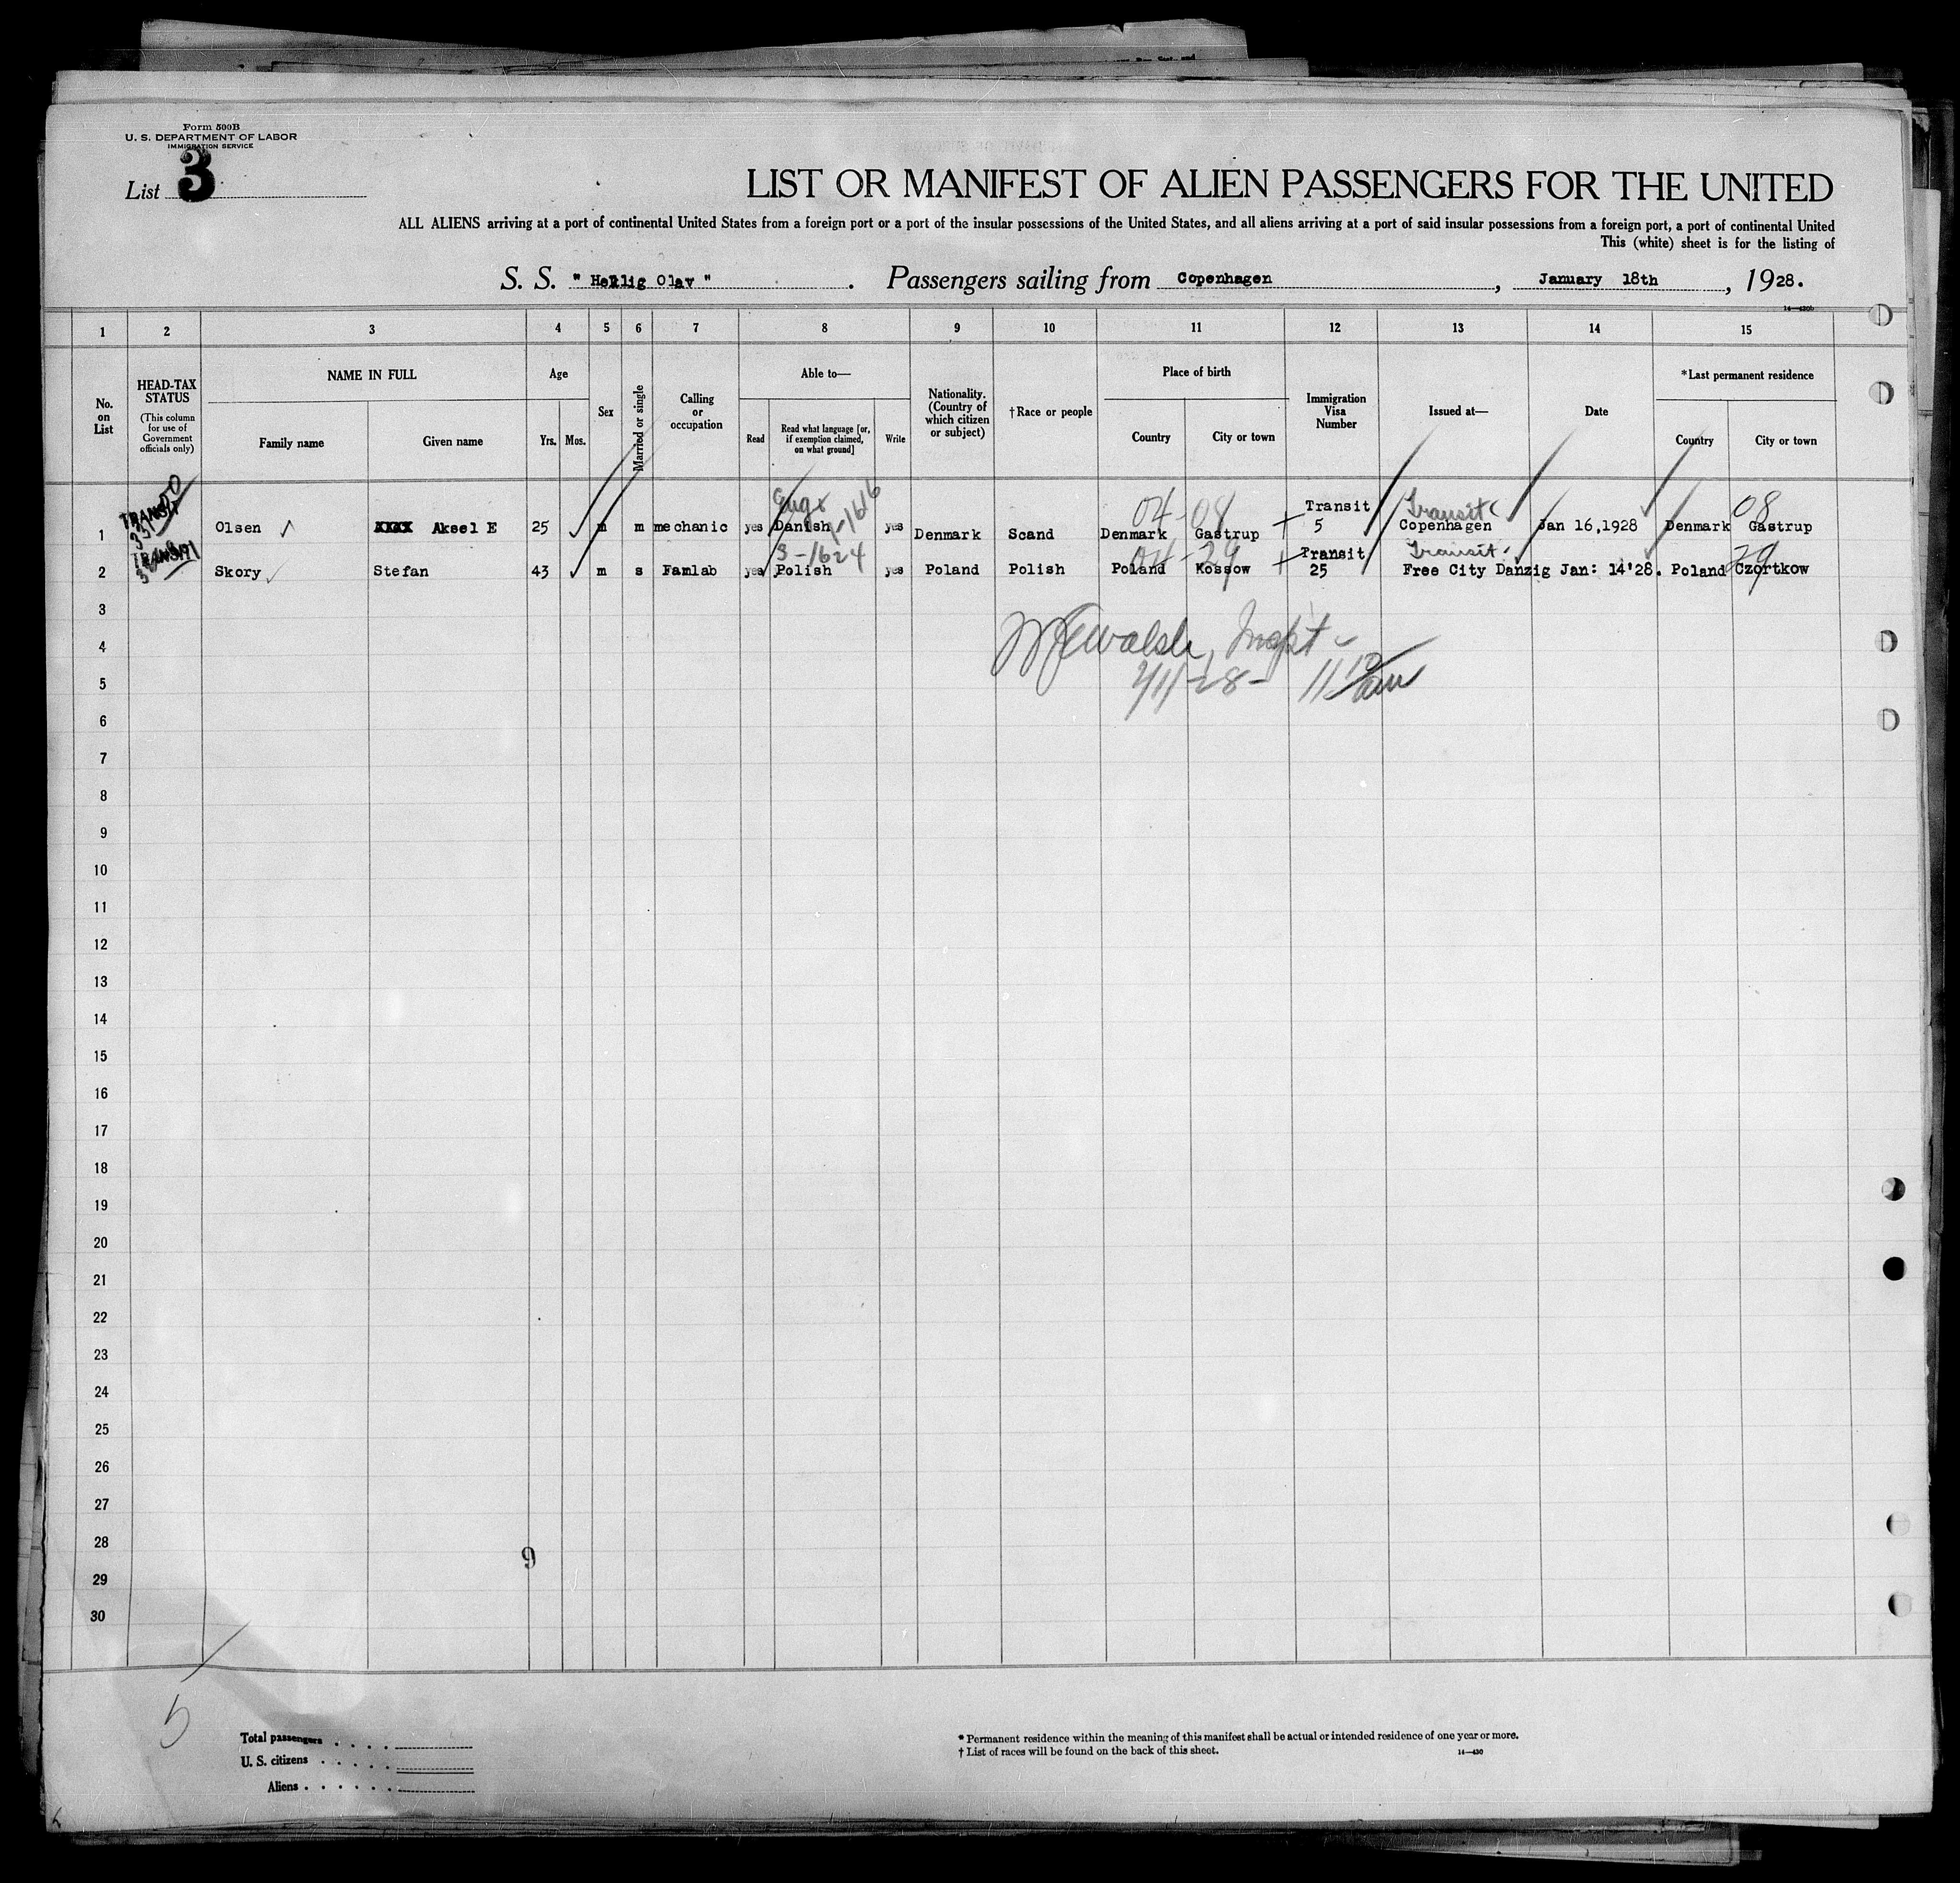 Form 500B
U. S. DEPARTMENT OF LABOR
IMMIGRATION SERVICE
List 3
LIST OR MANIFEST OF ALIEN PASSENGERS FOR THE UNITED
ALL ALIENS arriving at a port of continental United States from a foreign port or a port of the insular possessions of the United States, and all aliens arriving at a port of said insular possessions from a foreign port, a port of continental United
This (white) sheet is for the listing of
S. S. " Hellig Olav " . Passengers sailing from Copenhagen , January 18th , 1928.
14—430b
1 2 3 4 5 6 7 8 9 10 11 12 13 14 15
No. on List
HEAD-TAX STATUS
(This column for use of Government officials only)
NAME IN FULL
Family name
Given name
Age
Yrs. Mos.
Sex
Married or single
Calling or occupation
Able to—
Read
Read what language [or, if exemption claimed, on what ground]
Write
Nationality. (Country of which citizen or subject)
†Race or people
Place of birth
Country
City or town
Immigration Visa Number
Issued at—
Date
*Last permanent residence
Country
City or town
TRANSIT
04-08 Transit Transit 08
1 Olsen XXXX Aksel E 25 m m mechanic yes Danish yes Denmark Scand Denmark Gastrup 5 Copenhagen Jan 16,1928 Denmark Gastrup
TRANSIT
3-1624 04-29 Transit Transit 29
2 Skory Stefan 43 m s Famlab yes Polish yes Poland Polish Poland Kossow 25 Free City Danzig Jan: 14'28. Poland Czortkow
3
4 Walsh, Inspt
5
6
7
8
9
10
11
12
13
14
15
16
17
18
19
20
21
22
23
24
25
26
27
28
9
29
30
5
Total passengers
U. S. citizens
Aliens
* Permanent residence within the meaning of this manifest shall be actual or intended residence of one year or more.
† List of races will be found on the back of this sheet.
14—430